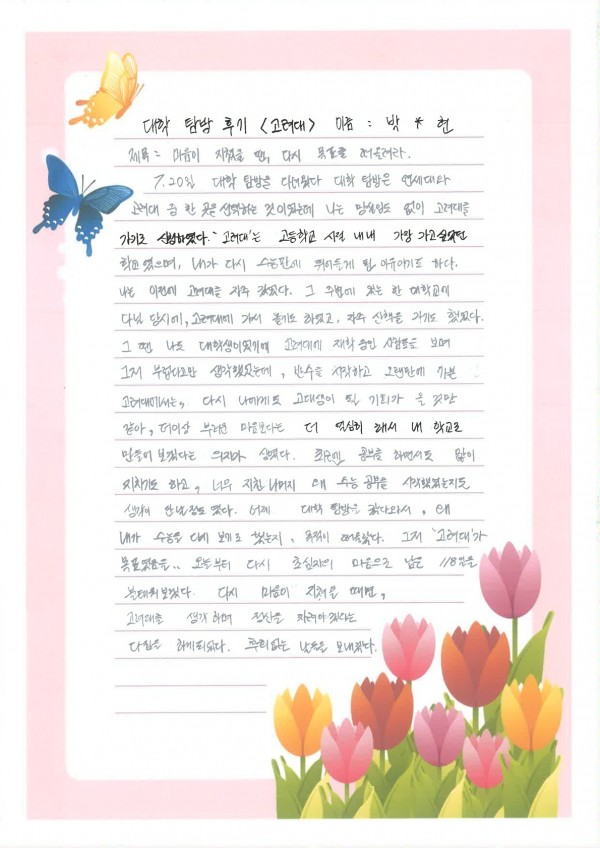 대학 탐방 후기 <고려대> 이름 : 박 * 현
제목 = 마음이 지쳤을 땐, 다시 목표를 떠올려라.
7.20일 대학 탐방을 다녀왔다 대학 탐방은 연세대와
고려대 중 한 곳을 선택하는 것이었는데 나는 망설임도 없이 고려대를
가기로 신청하였다. '고려대'는 고등학교 시절 내내 가장 가고싶었던
학교였으며, 내가 다시 수능판에 뛰어들게 된 이유이기도 하다.
나는 이전에 고려대를 자주 갔었다. 그 주변에 있는 한 대학교에
다닐 당시에, 고려대에 가서 놀기도 하였고, 자주 산책을 가기도 했었다.
그 땐, 나도 대학생이었기에 고려대에 재학 중인 사람들을 보며
그저 부럽다고만 생각했었는데, 반수를 시작하고 오랜만에 가본
고려대에서는, 다시 나에게도 고대생이 될 기회가 올 것만
같아, 더이상 부러운 마음보다는 더 열심히 해서 내 학교로
만들어 보겠다는 의지가 생겼다. 최근엔 공부를 하면서도 많이
지치기도 하고, 너무 지친 나머지 왜 수능 공부를 시작했었는지도
생각이 안 날 정도 였다. 어제 대학 탐방을 갔다와서, 왜
내가 수능을 다시 보려고 했는지, 목적이 떠올랐다. 그저 '고려대'가
목표였음을.. 오늘부터 다시 초심자의 마음으로 남은 118일을
불태워보겠다. 다시 마음이 지쳤을 때면,
고려대를 생각하며 정신을 차려야겠다는
다짐을 하게되었다. 후회없는 날들을 보내겠다.